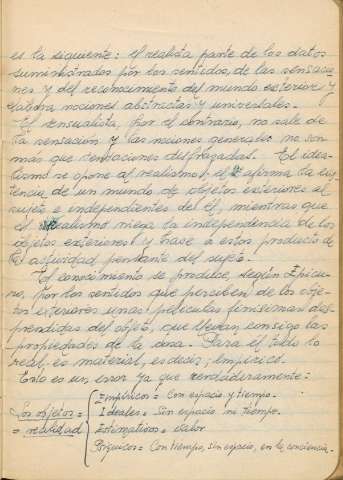 es la siguiente: el realista parte de los datos
suministrados por los sentidos, de las sensacio
nes y del reconocimiento del mundo exterior y
elabora nociones abstractas y universales.
El sensualista, por el contrario, no sale de
la sensación y las nociones generales no son
más que sensaciones disfrazadas. El idea-
lismo se opone al realismo: el afirma la exis
tencia de un mundo de objetos exteriores al
sujeto e independientes del él, mientras que
el idealismo niega la independencia de los
objetos exteriores y hace a estos producto de
la actividad pensante del sujeto.
El conocimiento se produce, según Epicu-
ro, por los sentidos que perciben de los obje-
tos exteriores unas películas finísimas des-
prendidas del objeto, que llevan consigo las
propiedades de la cosa. Para él todo lo
real, es material, es decir; empírico.
Esto es un error ya que verdaderamente:
Los objetos =
= realidad
Empíricos = Con espacio y tiempo.
Ideales = Sin espacio ni tiempo.
Estimativos = valor
Psíquicos = Con tiempo, sin espacio, en la conciencia.